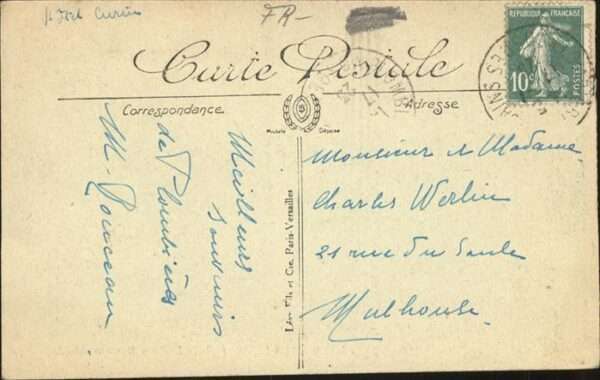 FR-
Carte Postale
Correspondance
Adresse
Modèle Déposé
RÉPUBLIQUE FRANÇAISE
10c
POSTES
Meilleurs
souvenirs
de Plombières
Lévy Fils et Cie, Paris-Versailles
Monsieur & Madame
Charles Werlin
21 rue du Saule
Mulhouse